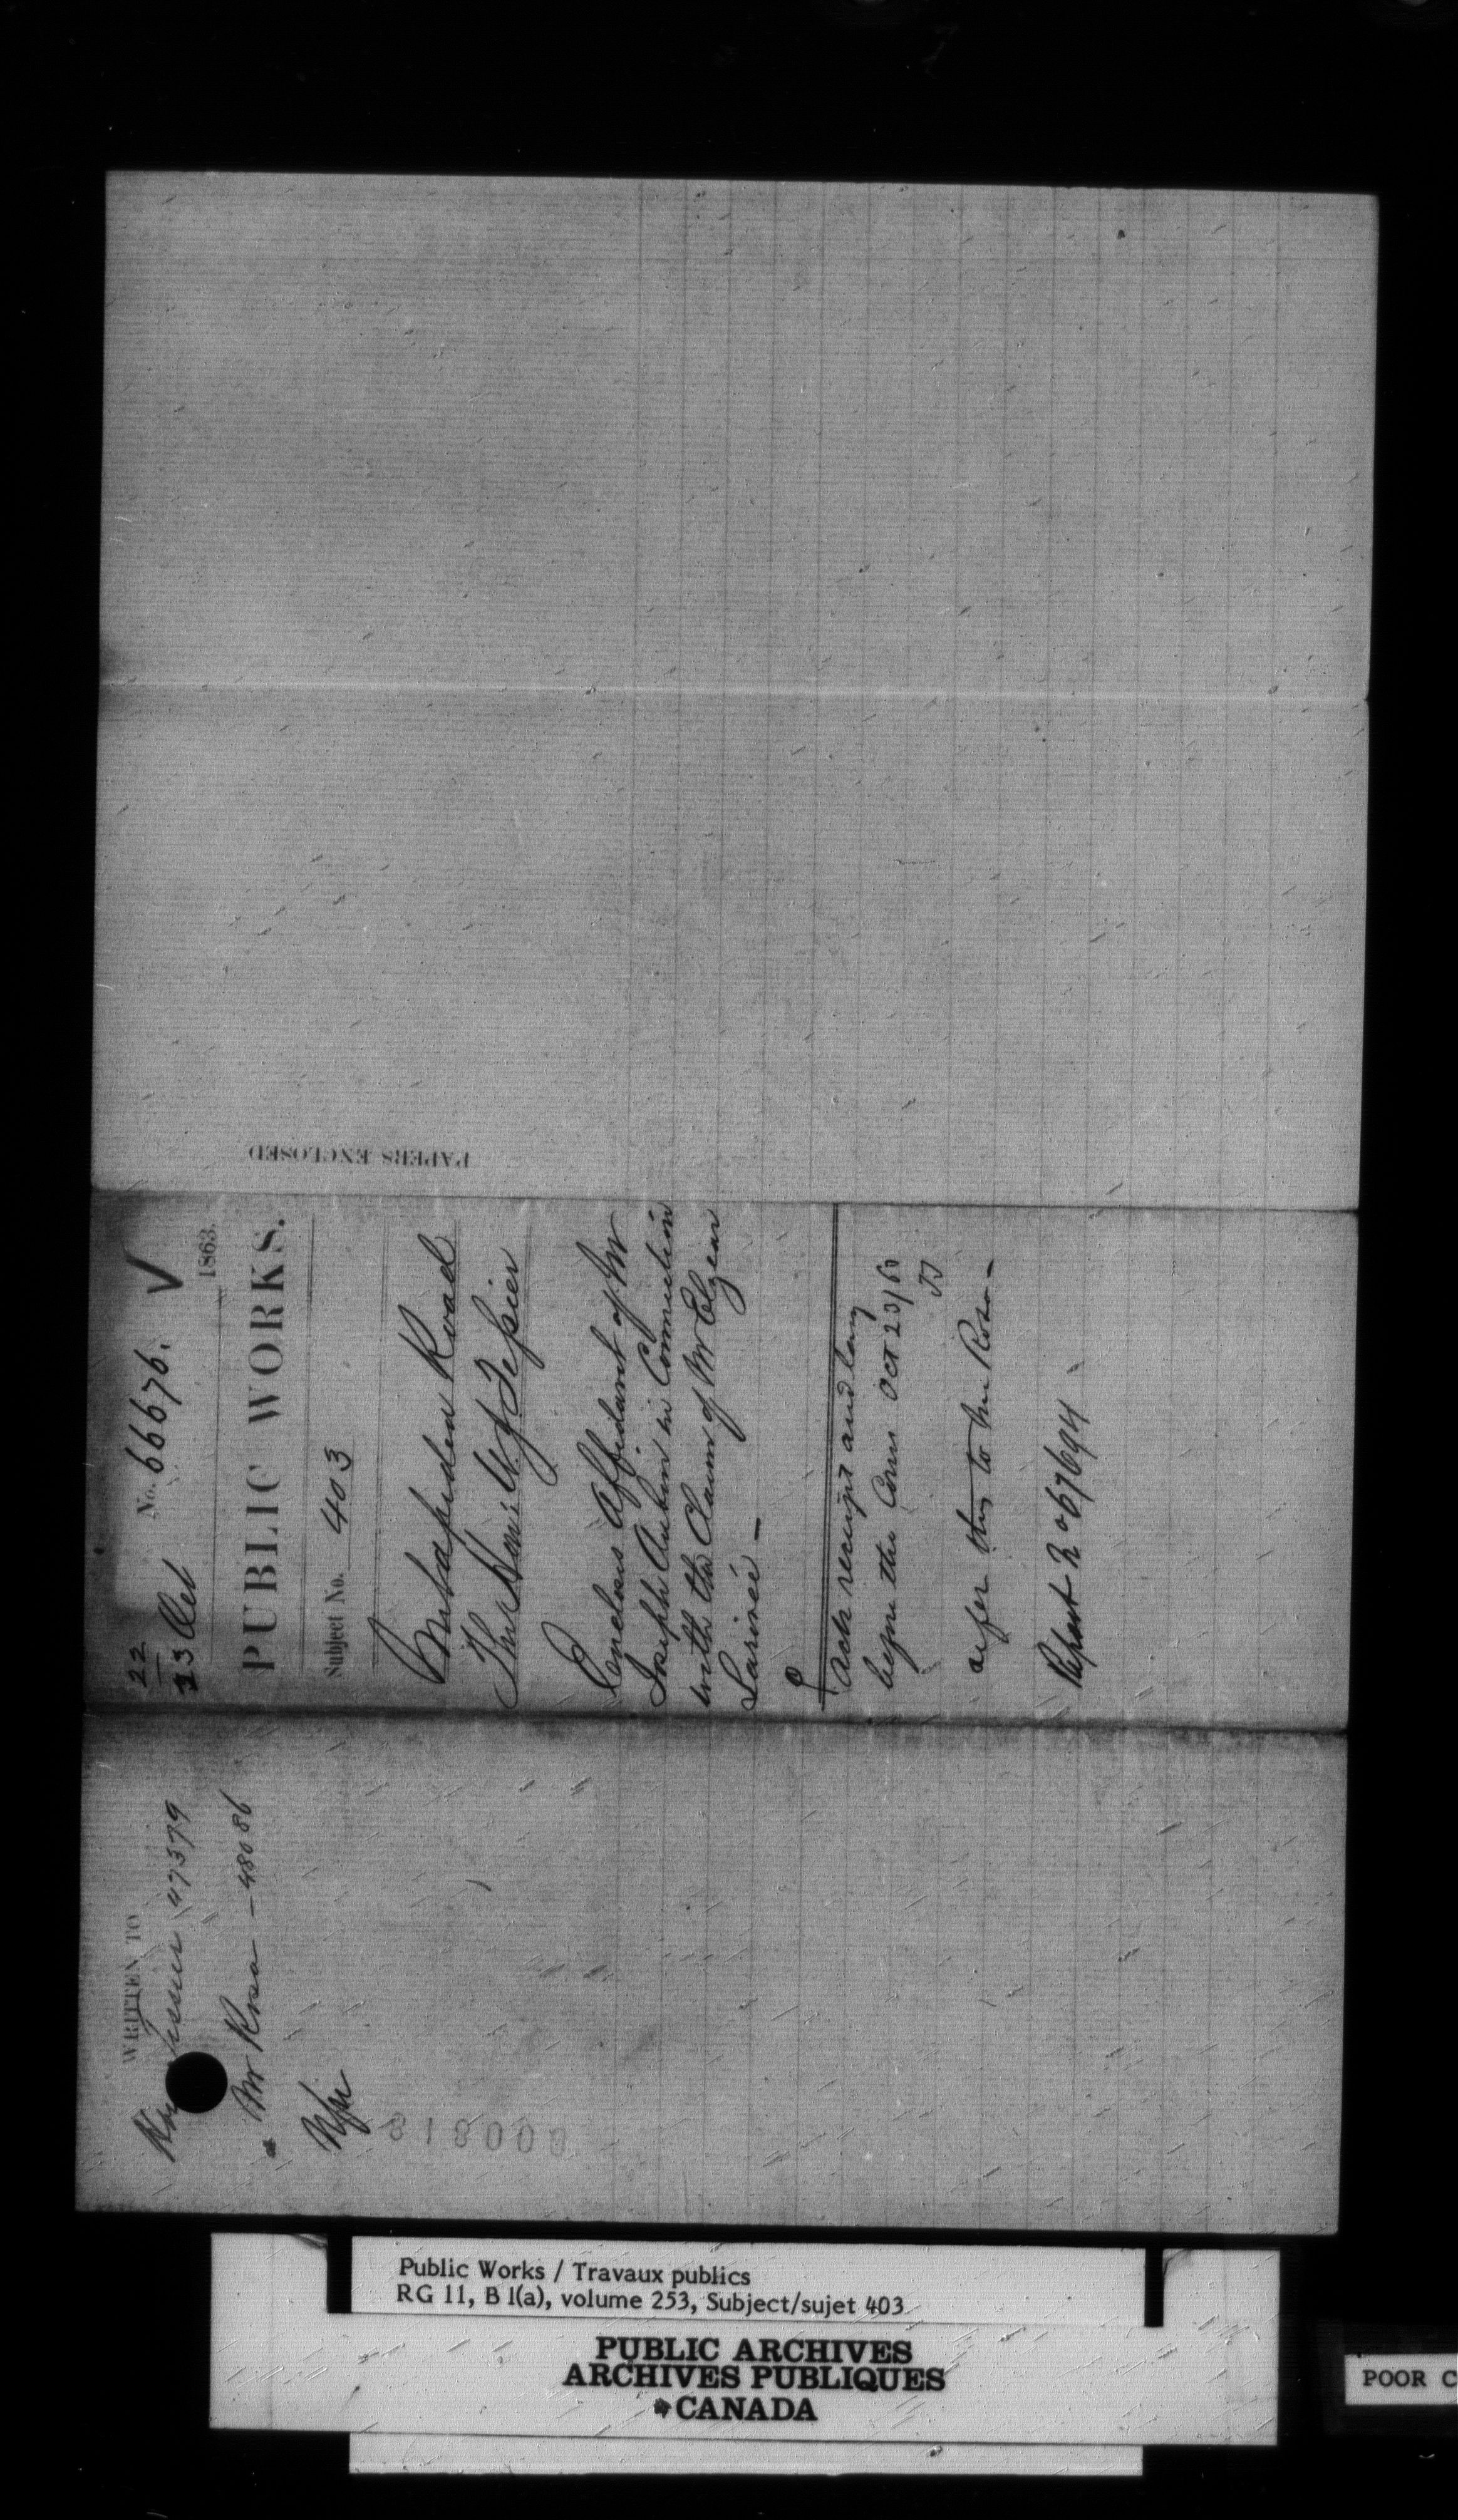 22
23 Oct No. 66676. ✓
1863.
PUBLIC WORKS.
Subject No. 403
Metapedia Road
The Hon: U J Tessier
Encloses Affidavit of Mr
Joseph Aubin in Connection
with the Claim of Mr Elzear
Larivée —
Ack receipt and lay
before the Com Oct 23/63
TT
refer this to Mr Rosa —
Report No 67694
PAPERS ENCLOSED
WRITTEN TO
Hon Tessier 47379
Mr Rosa — 48086
818000
Public Works / Travaux publics
RG 11, B 1(a), volume 253, Subject/sujet 403
PUBLIC ARCHIVES
ARCHIVES PUBLIQUES
CANADA
POOR C